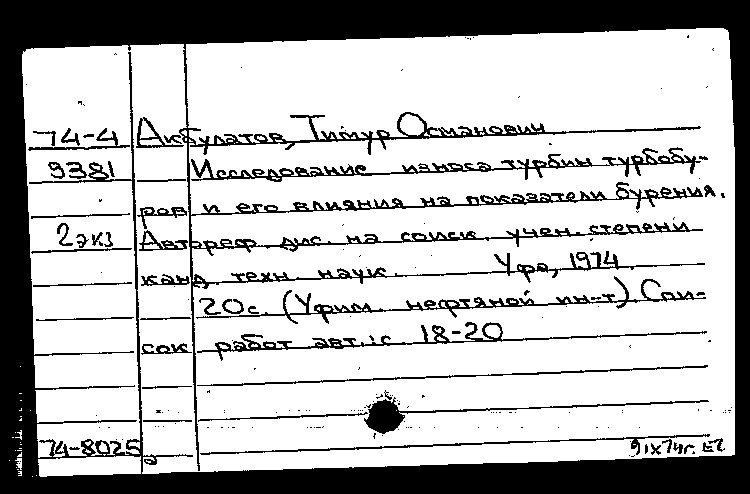 74-4 Акбулатов, Тимур Османович
9381 Исследование износа турбин турбобу-
ров и его влияния на показатели бурения.
2 экз Автореф. дис. на соиск. учен. степени
канд. техн. наук. Уфа, 1974.
20с. (Уфим. нефтяной ин-т). Спи-
сок работ авт.: с. 18-20
74-8025 9 IX 74г.